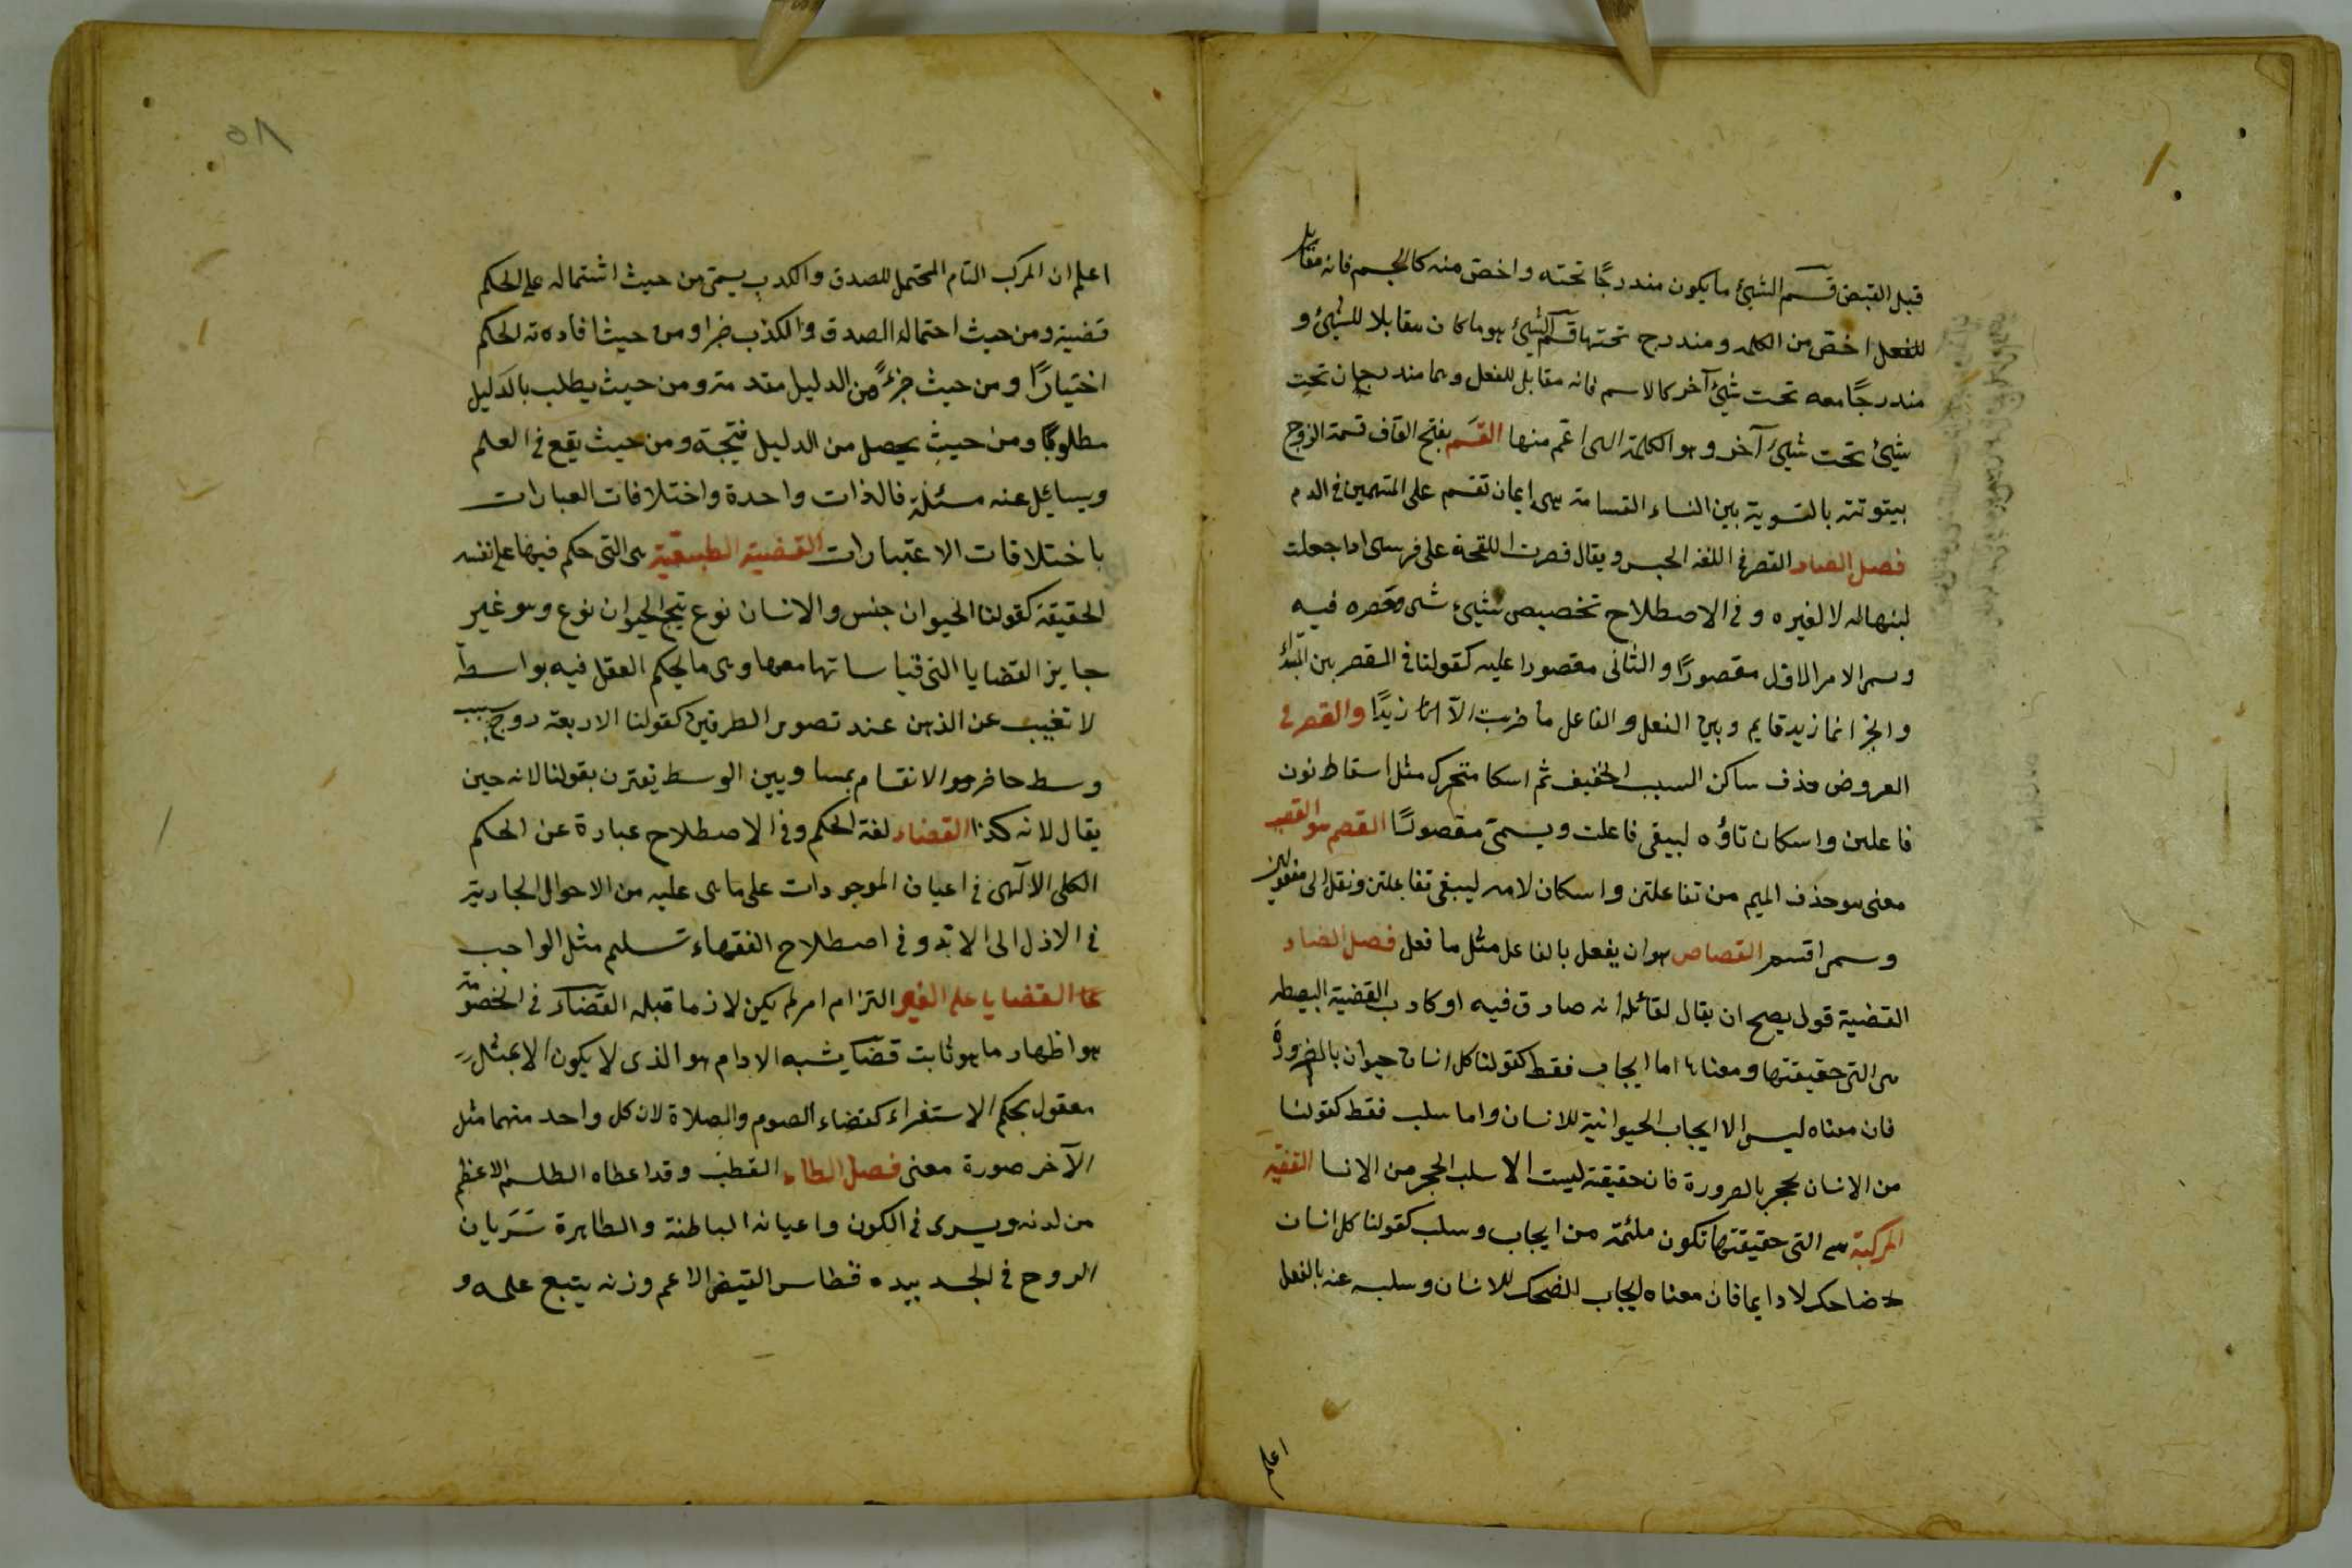 قبل القبض قسم الشيئ ما يكون مندرجًا تحته واخص منه كالجسم فانه مقابل
للفعل اخصّ من الكلمه ومندرج تحتها قسم الشيئ هو ما كان مقابلا للشيئ و
مندرجًا معه تحت شيئ آخر كالاسم فانه مقابل للفعل وهما مندرجان تحت
شيئ تحت شيئ آخر وهو الكلمة التى اعم منها القسَم بفتح القاف قسمة الزوج
بيتوتته بالتسوية بين النساء القسامة هى ايمان تقسم على المتهمين فى الدم
فصل الصاد القصر فى اللغه الحبس ويقال قصرت اللقحة على فرسى اذا جعلت
لبنها له لا لغيره و فى الاصطلاح تخصيص شيئ بشى وحصره فيه
وسمى الامر الاول مقصورًا والثانى مقصورا عليه كقولنا فى القصر بين المبتدأ
والخبر انما زيد قايم وبين الفعل والفاعل ما ضربت الّا زيدًا والقصر فى
العروض حذف ساكن السبب الخفيف ثم اسكا متحرك مثل اسقاط نون
فاعلتن واسكان تاؤه ليبقى فاعلت ويسمّى مقصورًا القصم هو العصب
معنى هو حذف الميم من مفاعلتن واسكان لامه ليبقى فاعلتن ونقل الى مفعولن
وسمى اقسم القصاص هو ان يفعل بالفاعل مثل ما فعل فصل الضاد
القضية قول يصح ان يقال لقائله انه صادق فيه او كاذب القضية البسيطه
هى التى حقيقتها ومعناها اما ايجاب فقط كقولنا كل انسان حيوان بالضرورة
فان معناه ليس الا ايجاب الحيوانية للانسان واما سلب فقط كقولنا
من الانسان بحجر بالضرورة فان حقيقته ليست الا سلب الحجر من الانسا القضيه
المركبة هى التى حقيقتها تكون ملتئمة من ايجاب وسلب كقولنا كل انسان
ضاحك لا دايما فان معناه ايجاب الضحك للانسان وسلبه عنه بالفعل
اعلم
٥٨
اعلم ان المركب التام المحتمل للصدق والكذب يسمّى من حيث اشتماله على الحكم
قضية ومن حيث احتماله الصدق والكذب خبرا ومن حيث افادته الحكم
اختيارًا ومن حيث جزءً من الدليل مقدمة ومن حيث يطلب بالدليل
مطلوبًا ومن حيث يحصل من الدليل نتيجة ومن حيث يقع فى العلم
ويسايل عنه مسئلة فالذات واحدة واختلافات العبارات
باختلافات الاعتبارات القضية الطبيعية هى التى حكم فيها على نفسه
الحقيقة كقولنا الحيوان جنس والانسان نوع ينتج الحيوان نوع وهو غير
جايز القضايا التى قياساتها معها وهى ما يحكم العقل فيه بواسطة
لا تغيب عن الذهن عند تصور الطرفين كقولنا الاربعة زوج بسبب
وسط حاضر هو الانقسام بمساويين الوسط يقترن بقولنا لانه حين
يقال لانه كذا القضاء لغة الحكم وفى الاصطلاح عبارة عن الحكم
الكلى الآلهى فى اعيان الموجودات على ما هى عليه من الاحوال الجارية
فى الازل الى الابد و فى اصطلاح الفقهاء تسليم مثل الواجب
القضايا على الغير التزام امر لم يكن لازما قبله القضاء فى الخصومة
هو اظهار ما هو ثابت قضا يشبه الادام هو الذى لا يكون الا بمثل
معقول بحكم الاستقراء كقضاء الصوم والصلاة لان كل واحد منهما مثل
الآخر صورة معنى فصل الطاء القطب وقد اعطاه الطلسم الاعظم
من لدنه ويسرى فى الكون واعيانه الباطنة والظاهرة سَرَيان
الروح فى الجسد بيده قسطاس الفيض الاعم وزنه يتبع علمه و